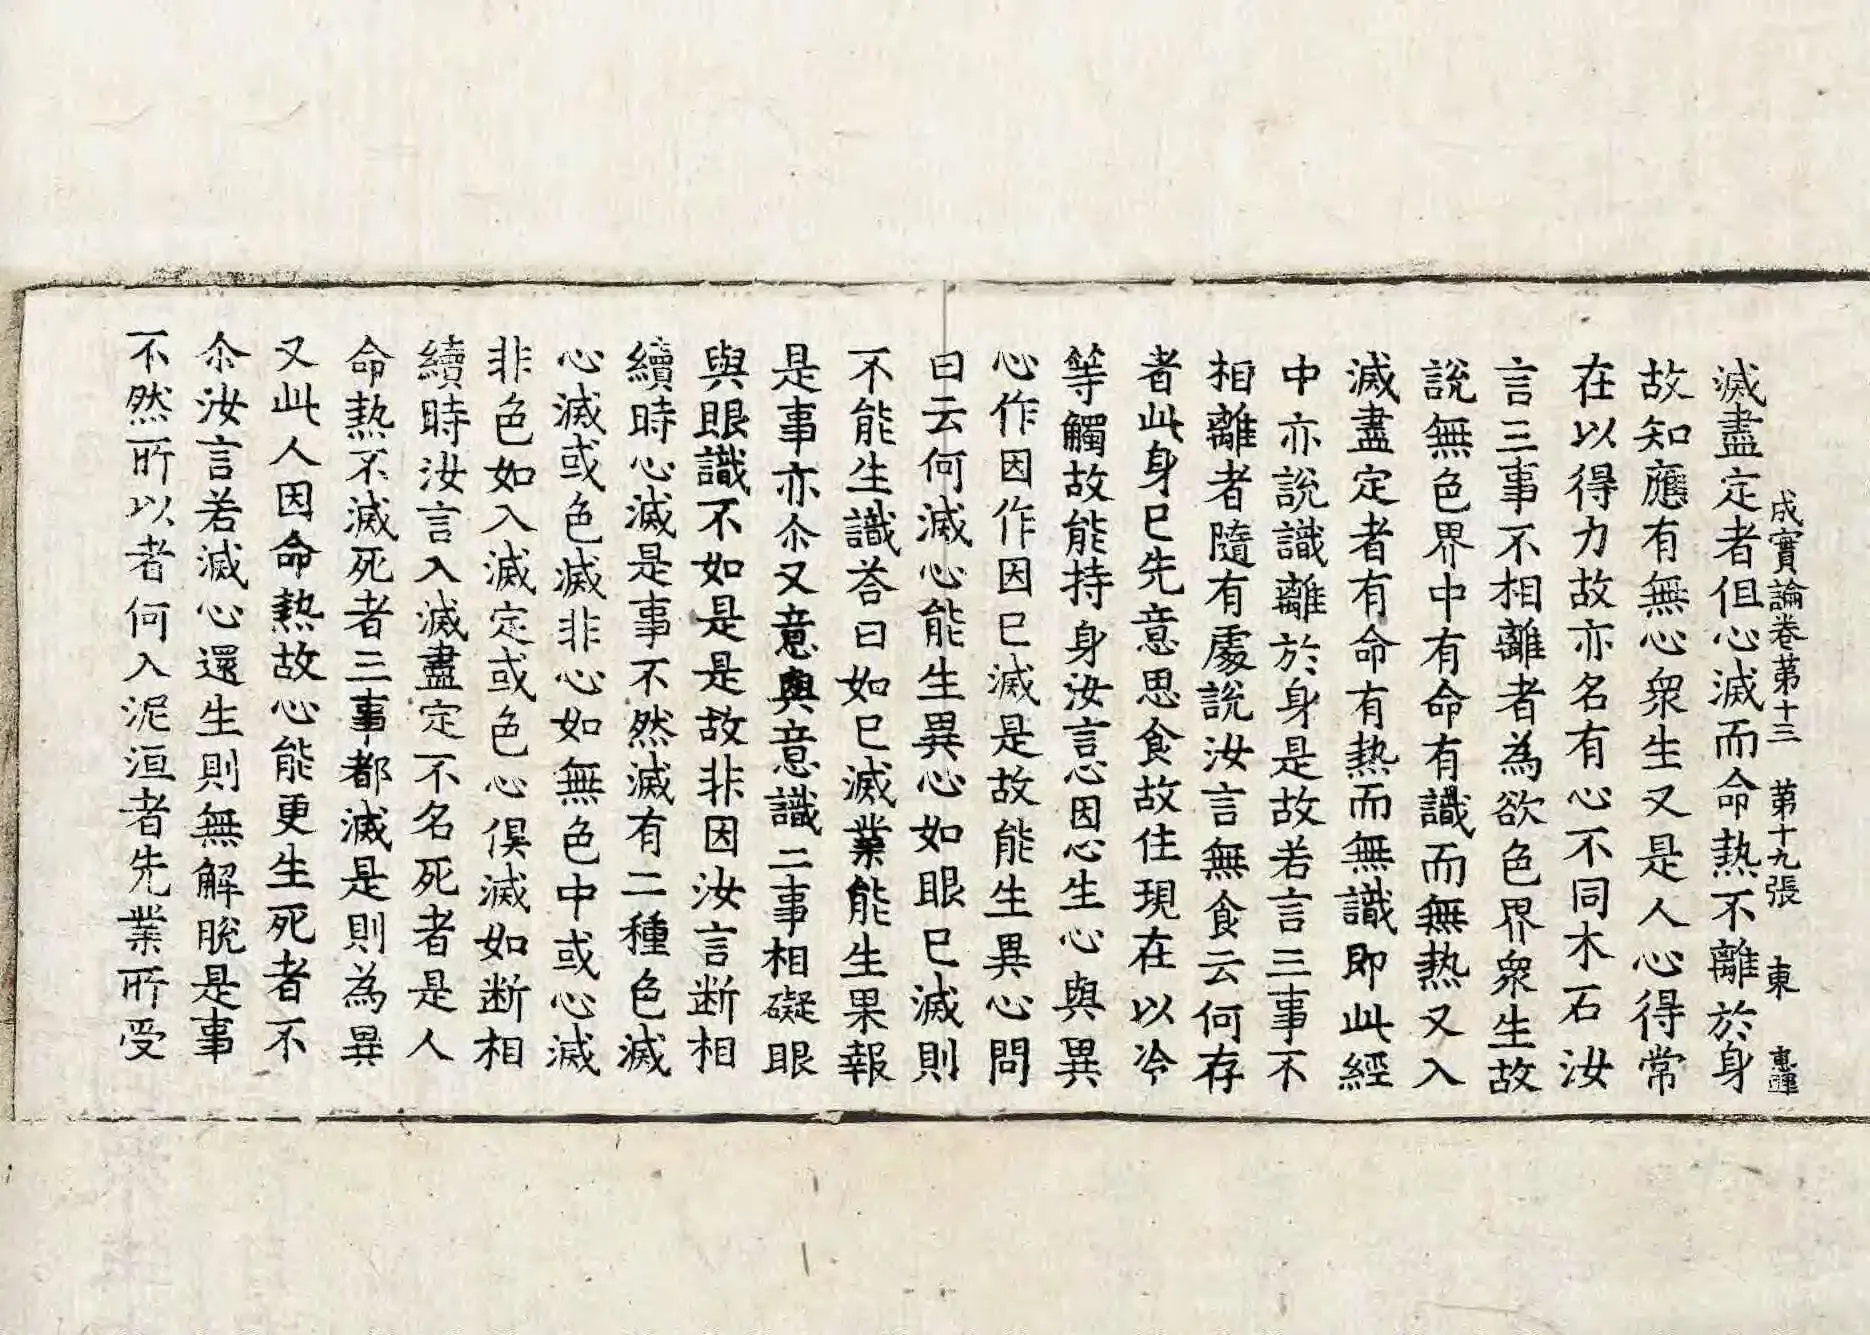 成實論卷苐十三 苐十九張 東 惠運
滅盡定者但心滅而命熱不離於身
故知應有無心衆生又是人心得常
在以得力故亦名有心不同木石汝
言三事不相離者為欲色界衆生故
說無色界中有命有識而無熱又入
滅盡定者有命有熱而無識即此經
中亦說識離於身是故若言三事不
相離者隨有處說汝言無食云何存
者此身已先意思食故住現在以冷
等觸故能持身汝言心因心生心與異
心作因作因已滅是故能生異心問
曰云何滅心能生異心如眼已滅則
不能生識荅曰如已滅業能生果報
是事亦尒又意與意識二事相礙眼
與眼識不如是是故非因汝言断相
續時心滅是事不然滅有二種色滅
心滅或色滅非心如無色中或心滅
非色如入滅定或色心俱滅如断相
續時汝言入滅盡定不名死者是人
命熱不滅死者三事都滅是則為異
又此人因命熱故心能更生死者不
尒汝言若滅心還生則無解脫是事
不然所以者何入泥洹者先業所受